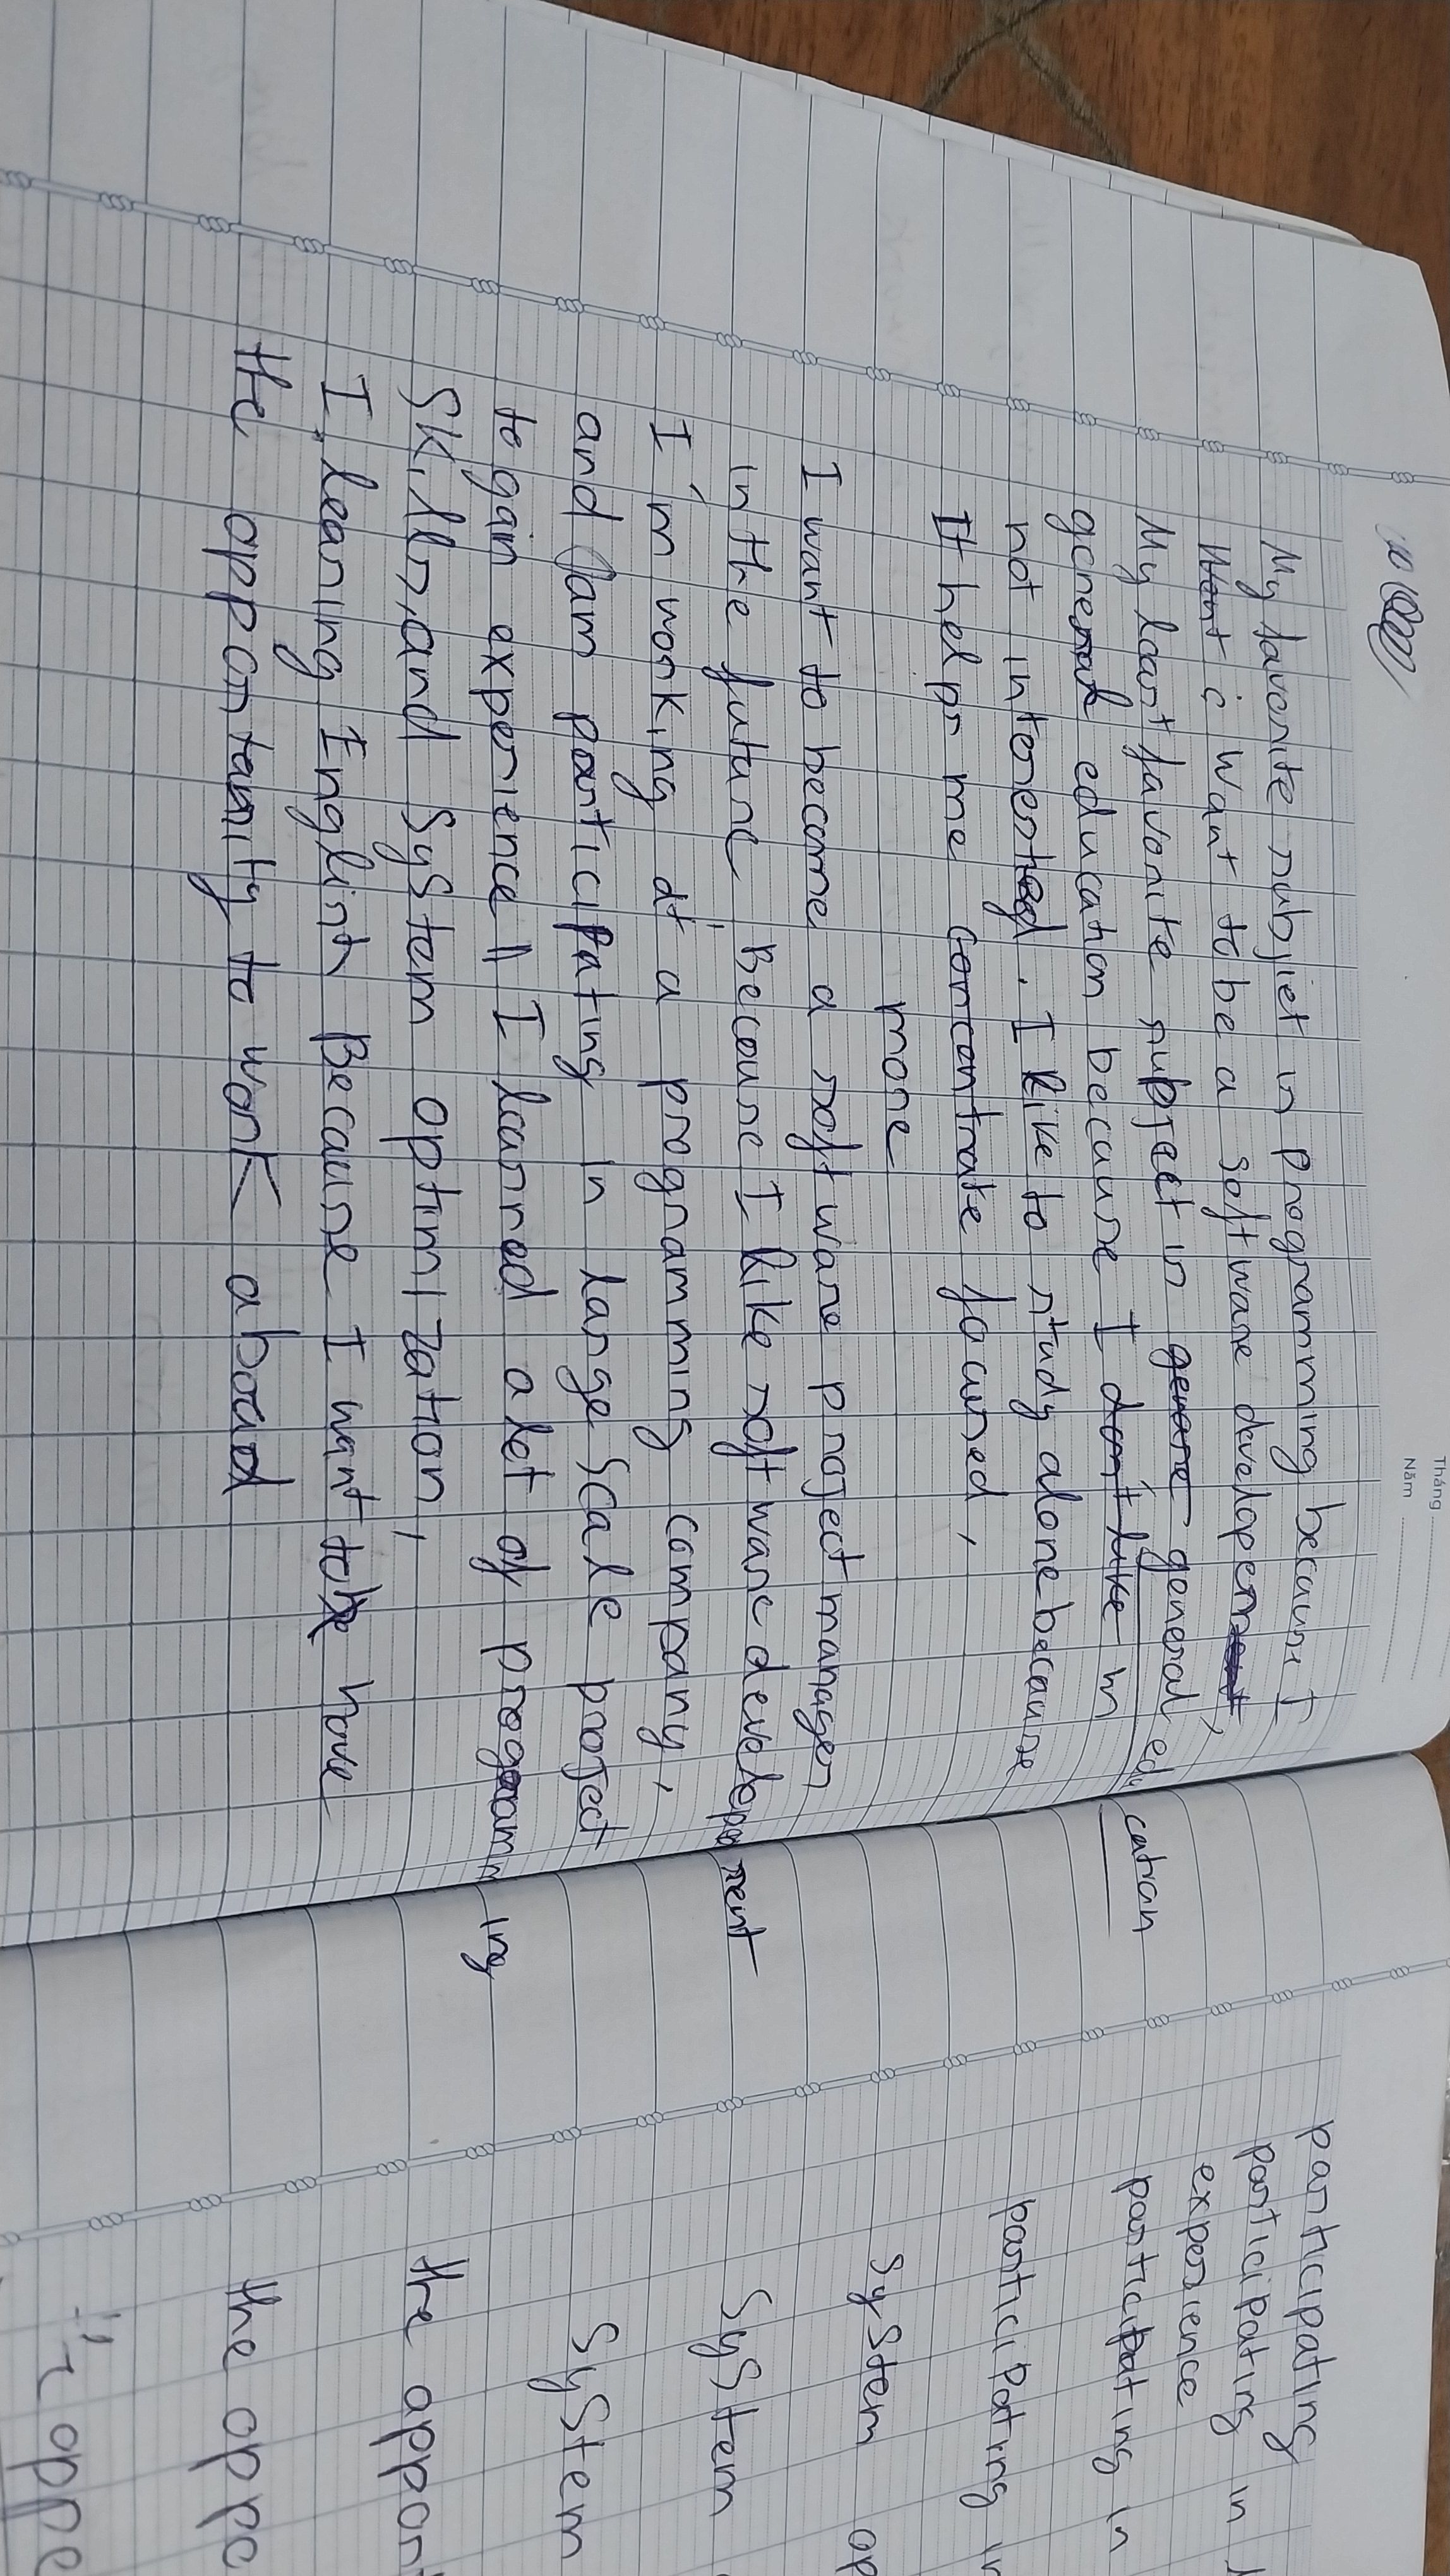 Tháng
Năm
My favorite subjiet is programming because I
Want i want to be a software developer,
My least favorite subject is genare general education
general education because I don't like is
not interested. I like to study alone because
It helps me concontrate focused,
more
I want to become a software project manager
in the future Because I like software development
I'm working at a programming company,
and I am participating in large scale project
to gain experience || I learned a lot of programming
Skills, and System optimization,
I, learning English Because I want to have
the opportunity to work aboad
participating
participating in
experience
participating in
participating in
System op
System
System
the oppor
the oppo
oppo